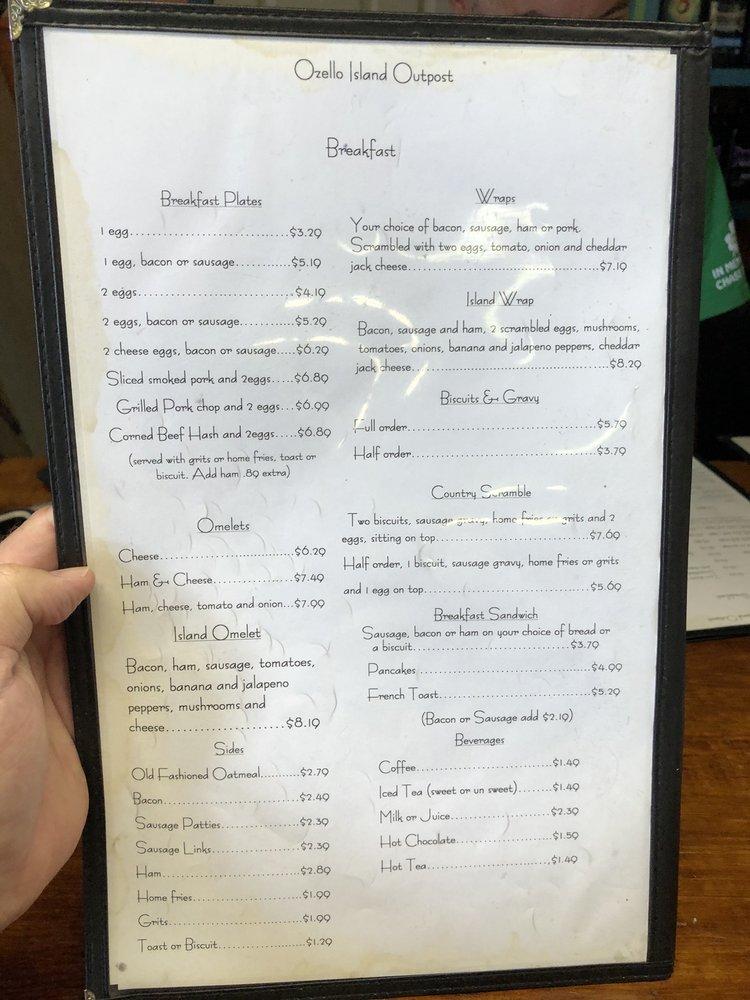 Ozello Island Outpost
Breakfast
Breakfast Plates
1 egg...............................$3.29
1 egg, bacon or sausage............$5.19
2 eggs..............................$4.19
2 eggs, bacon or sausage...........$5.29
2 cheese eggs, bacon or sausage.....$6.29
Sliced smoked pork and 2eggs....$6.89
Grilled Pork chop and 2 eggs...$6.99
Corned Beef Hash and 2eggs.....$6.89
(served with grits or home fries, toast or
biscuit. Add ham .89 extra)
Omelets
Cheese..............................$6.29
Ham & Cheese.................$7.49
Ham, cheese, tomato and onion...$7.99
Island Omelet
Bacon, ham, sausage, tomatoes,
onions, banana and jalapeno
peppers, mushrooms and
cheese........................$8.19
Sides
Old Fashioned Oatmeal..........$2.79
Bacon...............................$2.49
Sausage Patties....................$2.39
Sausage Links.....................$2.39
Ham................................$2.89
Home fries.........................$1.99
Grits................................$1.99
Toast or Biscuit....................$1.29
Wraps
Your choice of bacon, sausage, ham or pork.
Scrambled with two eggs, tomato, onion and cheddar
jack cheese.....................................$7.19
Island Wrap
Bacon, sausage and ham, 2 scrambled eggs, mushrooms,
tomatoes, onions, banana and jalapeno peppers, cheddar
jack cheese.....................................$8.29
Biscuits & Gravy
Full order......................................$5.79
Half order.....................................$3.79
Country Scramble
Two biscuits, sausage gravy, home fries or grits and 2
eggs, sitting on top..............................$7.69
Half order, 1 biscuit, sausage gravy, home fries or grits
and 1 egg on top.................................$5.69
Breakfast Sandwich
Sausage, bacon or ham on your choice of bread or
a biscuit........................................$3.79
Pancakes.......................................$4.99
French Toast...................................$5.29
(Bacon or Sausage add $2.19)
Beverages
Coffee..............................$1.49
Iced Tea (sweet or un sweet).......$1.49
Milk or Juice........................$2.39
Hot Chocolate......................$1.59
Hot Tea.............................$1.49